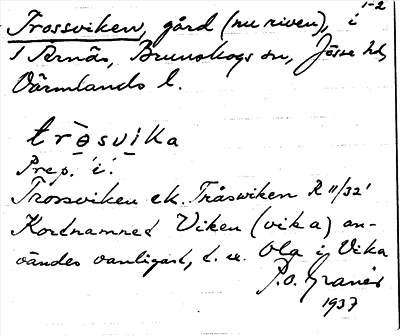 1-2
Trossviken, gård (nu riven), i
S Pernäs, Brunskogs sn, Jösse hd,
Värmlands l.
trɷsvika
Prep. i.
Trossviken ek. Tråswiken R 11/32'
Kortnamnet Viken (vika) an-
vändes vanligast, t. ex. Ola i Vika
P.O. Granér
1937